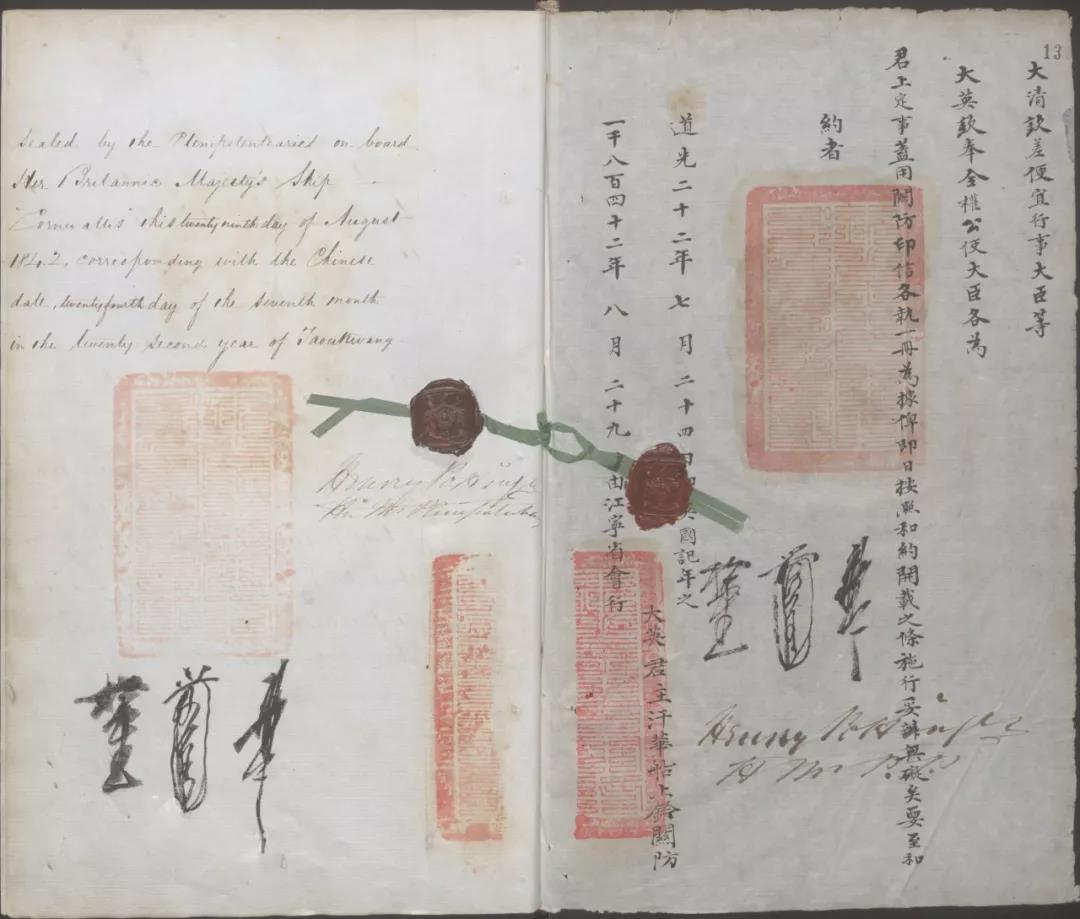 Sealed by the Plenipotentiaries on board
Her Britannic Majesty's Ship
"Cornwallis" this twenty ninth day of August
1842, corresponding with the Chinese
date, twenty fourth day of the seventh month
in the twenty second year of Taoukwang
Henry Pottinger
13
大清欽差便宜行事大臣等
大英欽奉全權公使大臣各為
君上定事蓋用關防印信各執一冊為據俾即日按照和約開載之條施行妥辦無礙矣要至和
約者
道光二十二年 七月 二十四日 英國記年之
一千八百四十二年 八月 二十九 由江寧省會行
大英君主汗華船上鈐關防
Henry Pottinger